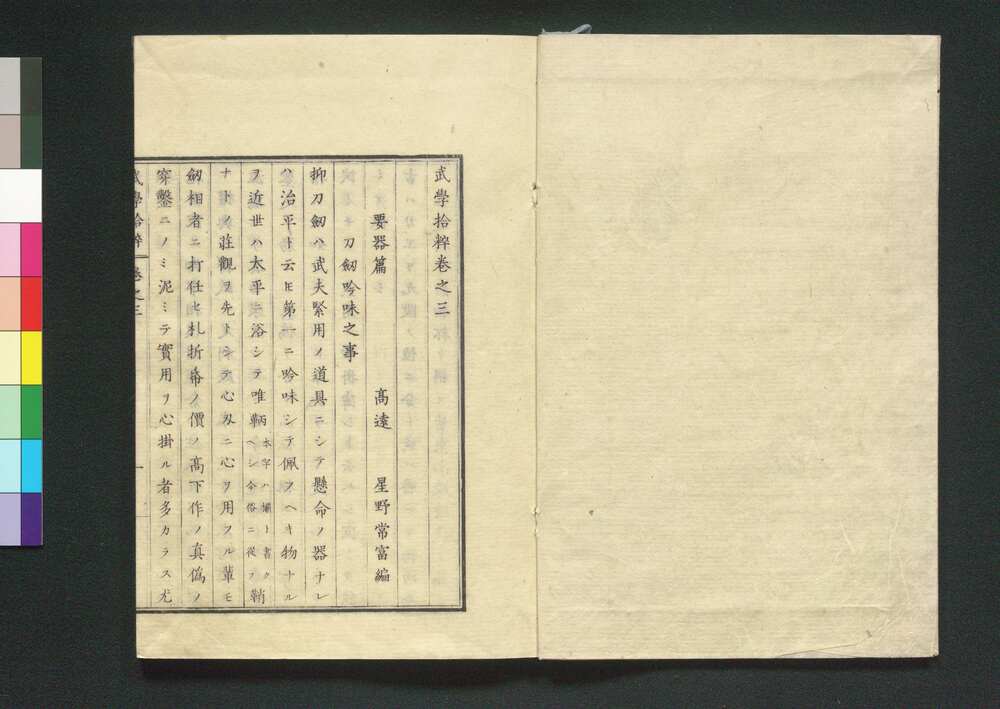 武學拾粹卷之三
要器篇 高遠 星野常富編
刀劔吟味之事
抑刀劔ハ武夫緊用ノ道具ニシテ懸命ノ器ナレ
ハ治平ト云𪜈第一ニ吟味シテ佩フヘキ物ナル
ヲ近世ハ太平ニ浴シテ唯鞆本字ハ欛ト書クヘシ今俗ニ從フ鞘
ナトノ莊觀ヲ先トシテ心ヲ刄ニ心ヲ用フル輩モ
劔相者ニ打任セ札折帋ノ價ノ高下作ノ真僞ノ
穿鑿ニノミ泥ミテ實用ヲ心掛ル者多カラス尤
武學拾粹 卷之三 一